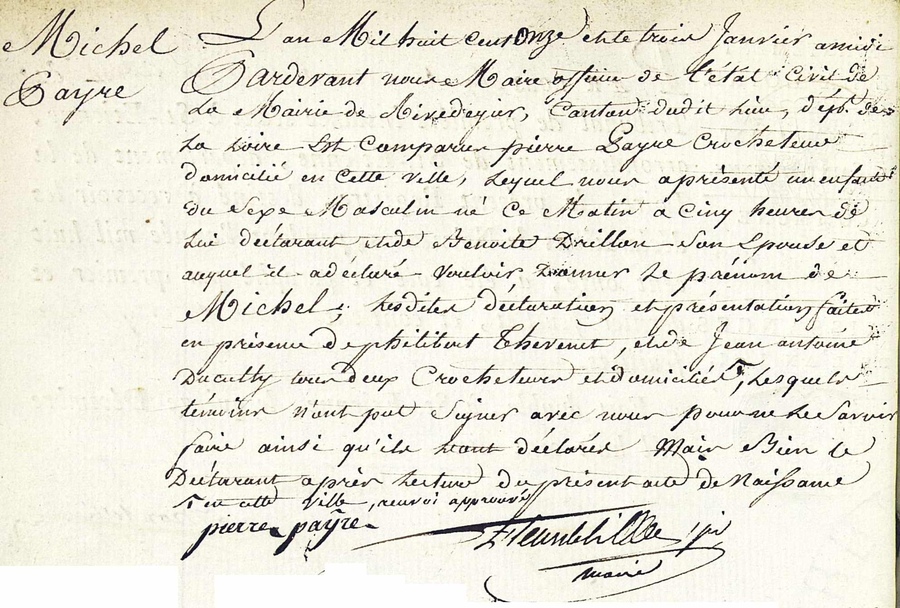 Michel
Payre
L'an Mil huit cent Onze et le trois Janvier a midi
Pardevant nous Maire officier de l'état Civil de
La Mairie de Rivedegier, Canton dudit Lieu, dépt. de
La Loire Est Comparu pierre Payre Crocheteur
domicilié en Cette ville, Lequel nous a présenté un enfant
du Sexe Masculin né Ce Matin a Cinq heures de
Lui déclarant et de Benoite Drillon Son Epouse et
auquel il a déclaré vouloir Donner Le prénom de
Michel; Lesdites déclaration et présentation faites
en présence de philibert Thevenet, et de Jean antoine
Ducully tous deux Crocheteurs et domiciliés, Lesquels
témoins n'ont put Signer avec nous pour ne Le Savoir
faire ainsi qu'ils L'ont déclarés Mais Bien Le
Déclarant après Lecture du présent acte de Naissance
en cette ville, renvoi approuvé
pierre payre
maire